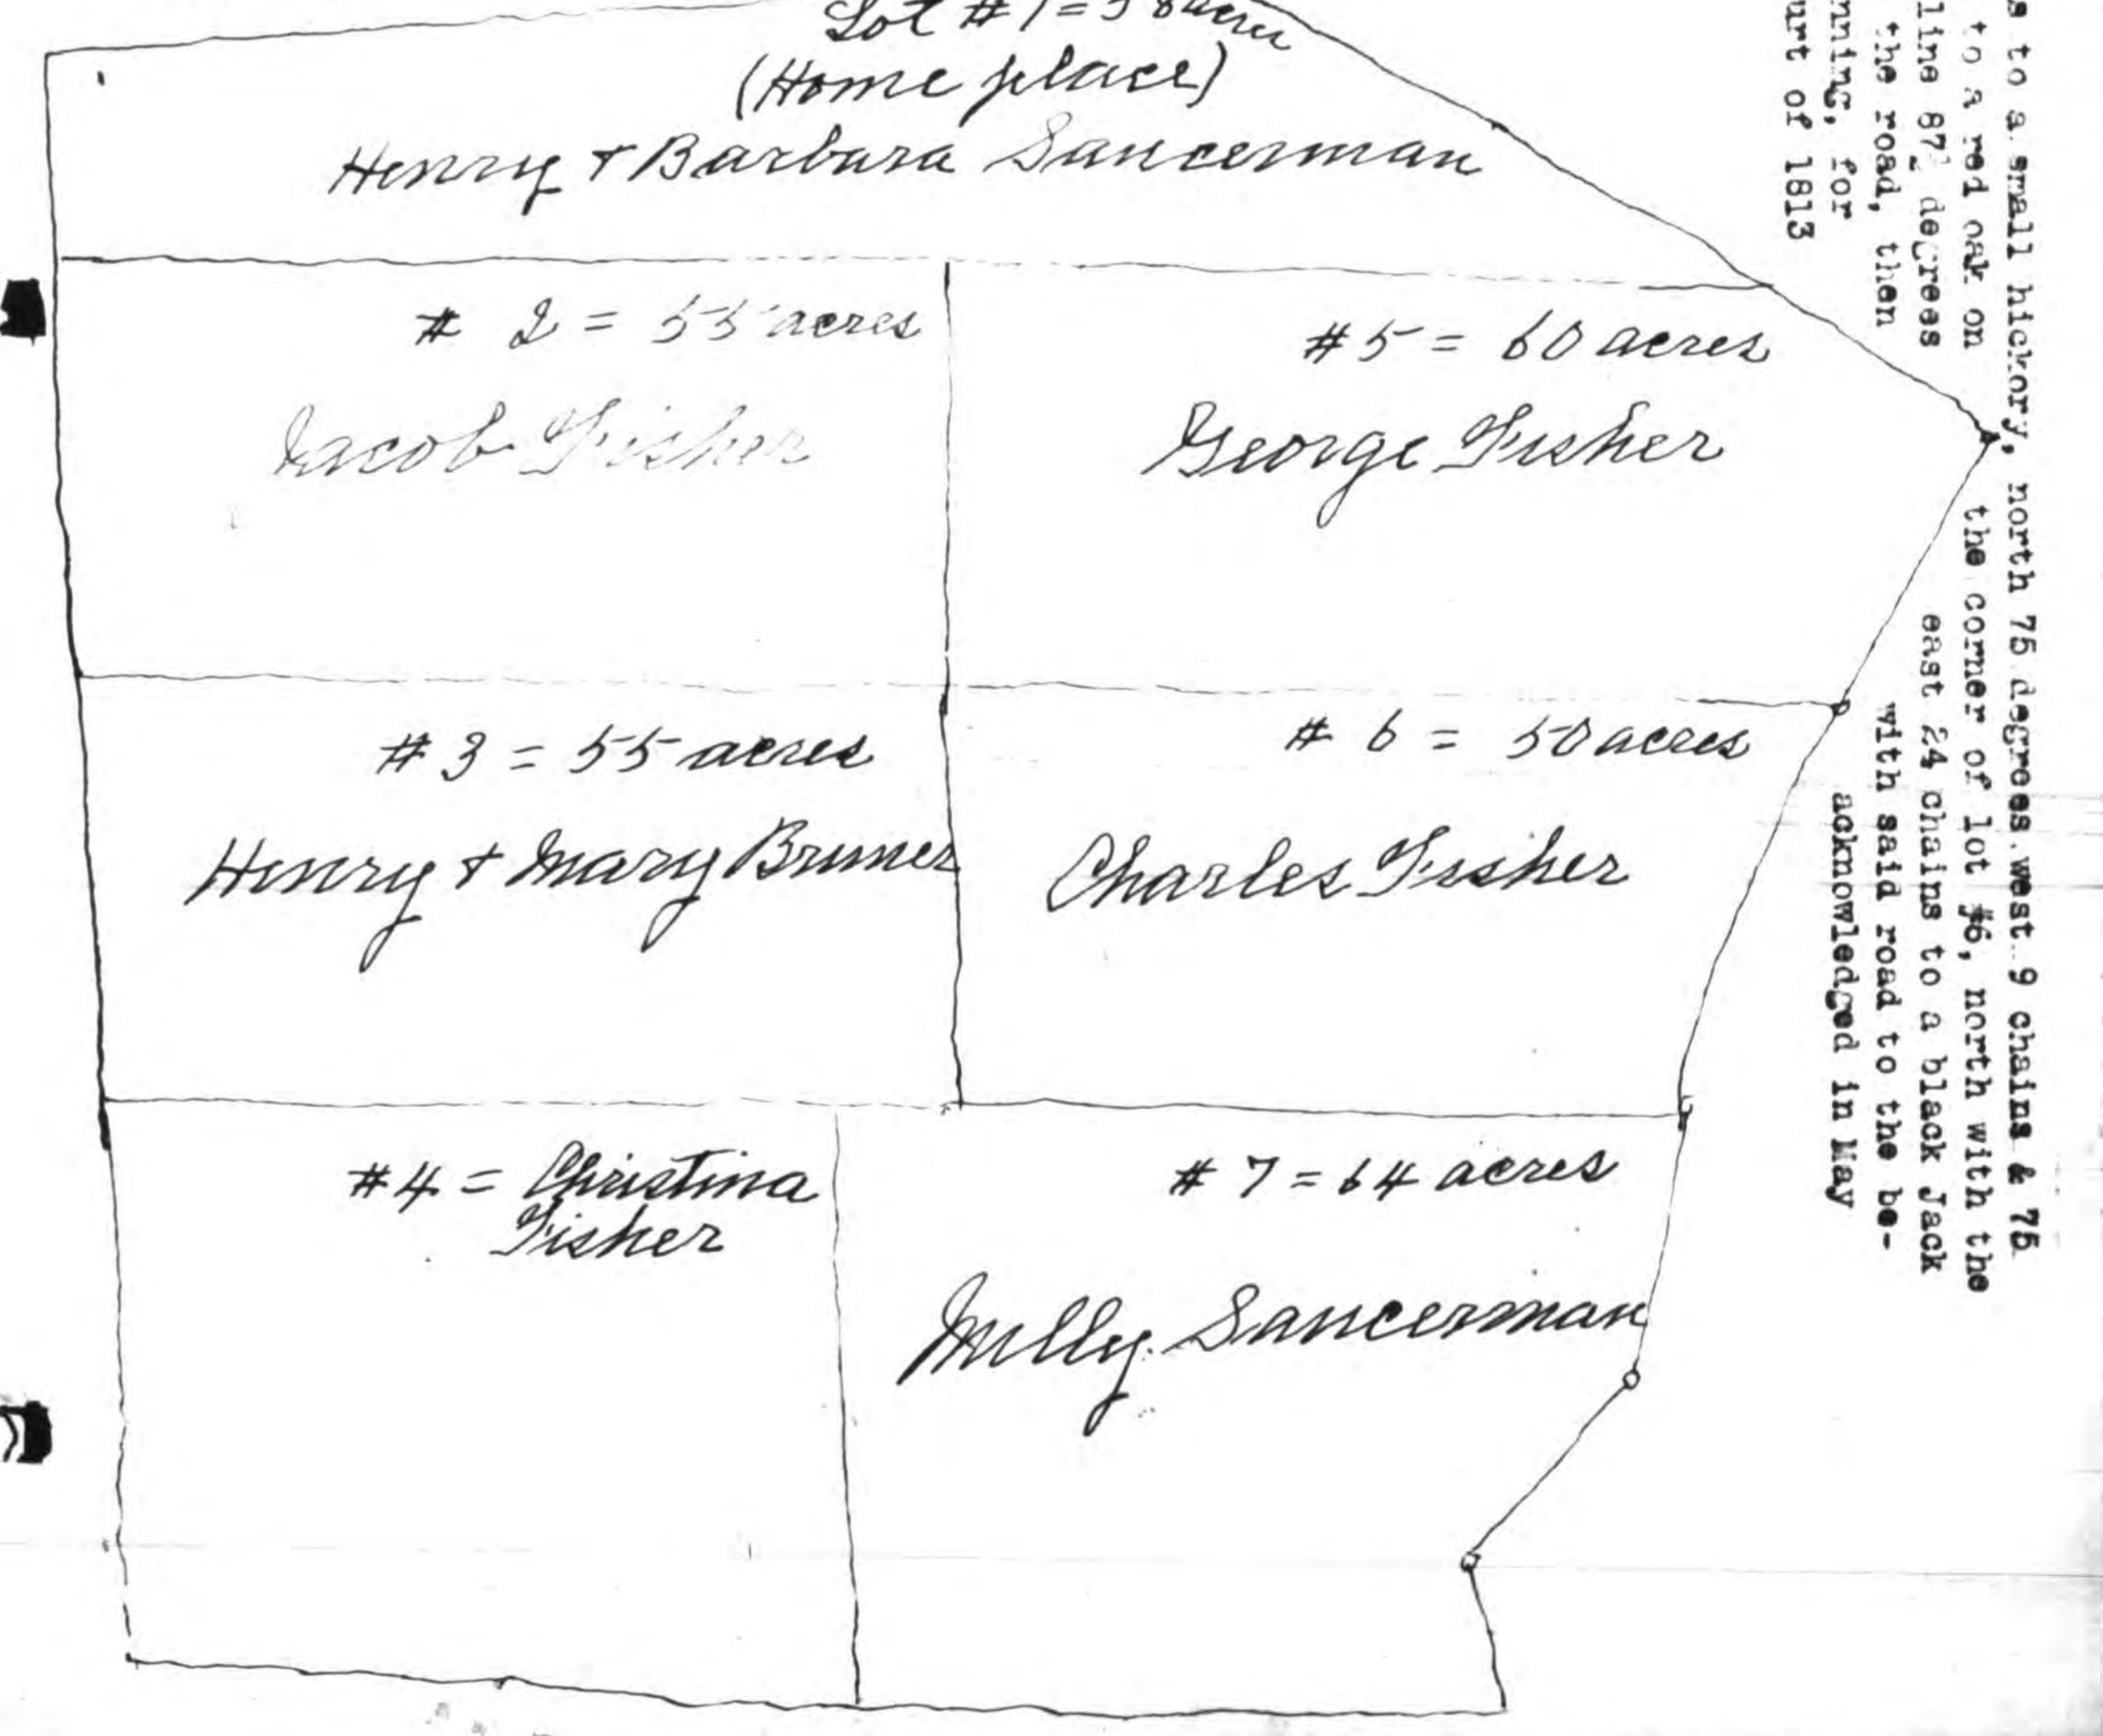 Lot #1 = 58 acres
(Home place)
Henry + Barbara Sancerman
# 2 = 55 acres
Jacob Fisher
#5 = 60 acres
George Fisher
#3 = 55 acres
Henry + Mary Bruner
# 6 = 50 acres
Charles Fisher
#4 = Christina
Fisher
# 7 = 64 acres
Milly Sancerman
s to a small hickory, north 75 degrees west 9 chains & 75
to a red oak on the corner of lot #6, north with the
line 87½ degrees east 24 chains to a black Jack
the road, then with said road to the be-
nning, for acknowledged in May
urt of 1813